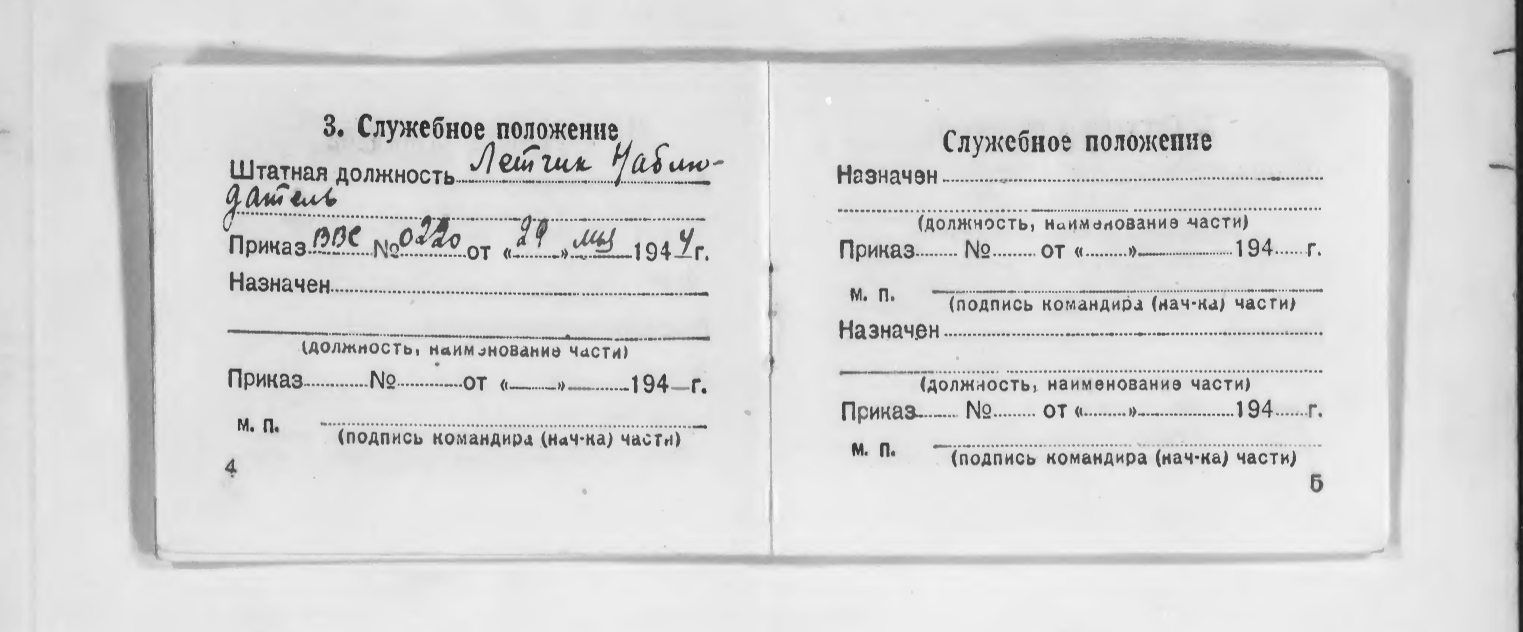 3. Служебное положение
Штатная должность Летчик Наблю-
датель
Приказ ВВС № 0220 от «29» мая 1944 г.
Назначен
(должность, наименование части)
Приказ № от « » 194 г.
м. п.
(подпись командира (нач-ка) части)
4
Служебное положение
Назначен
(должность, наименование части)
Приказ № от « » 194 г.
м. п.
(подпись командира (нач-ка) части)
Назначен
(должность, наименование части)
Приказ № от « » 194 г.
м. п.
(подпись командира (нач-ка) части)
5